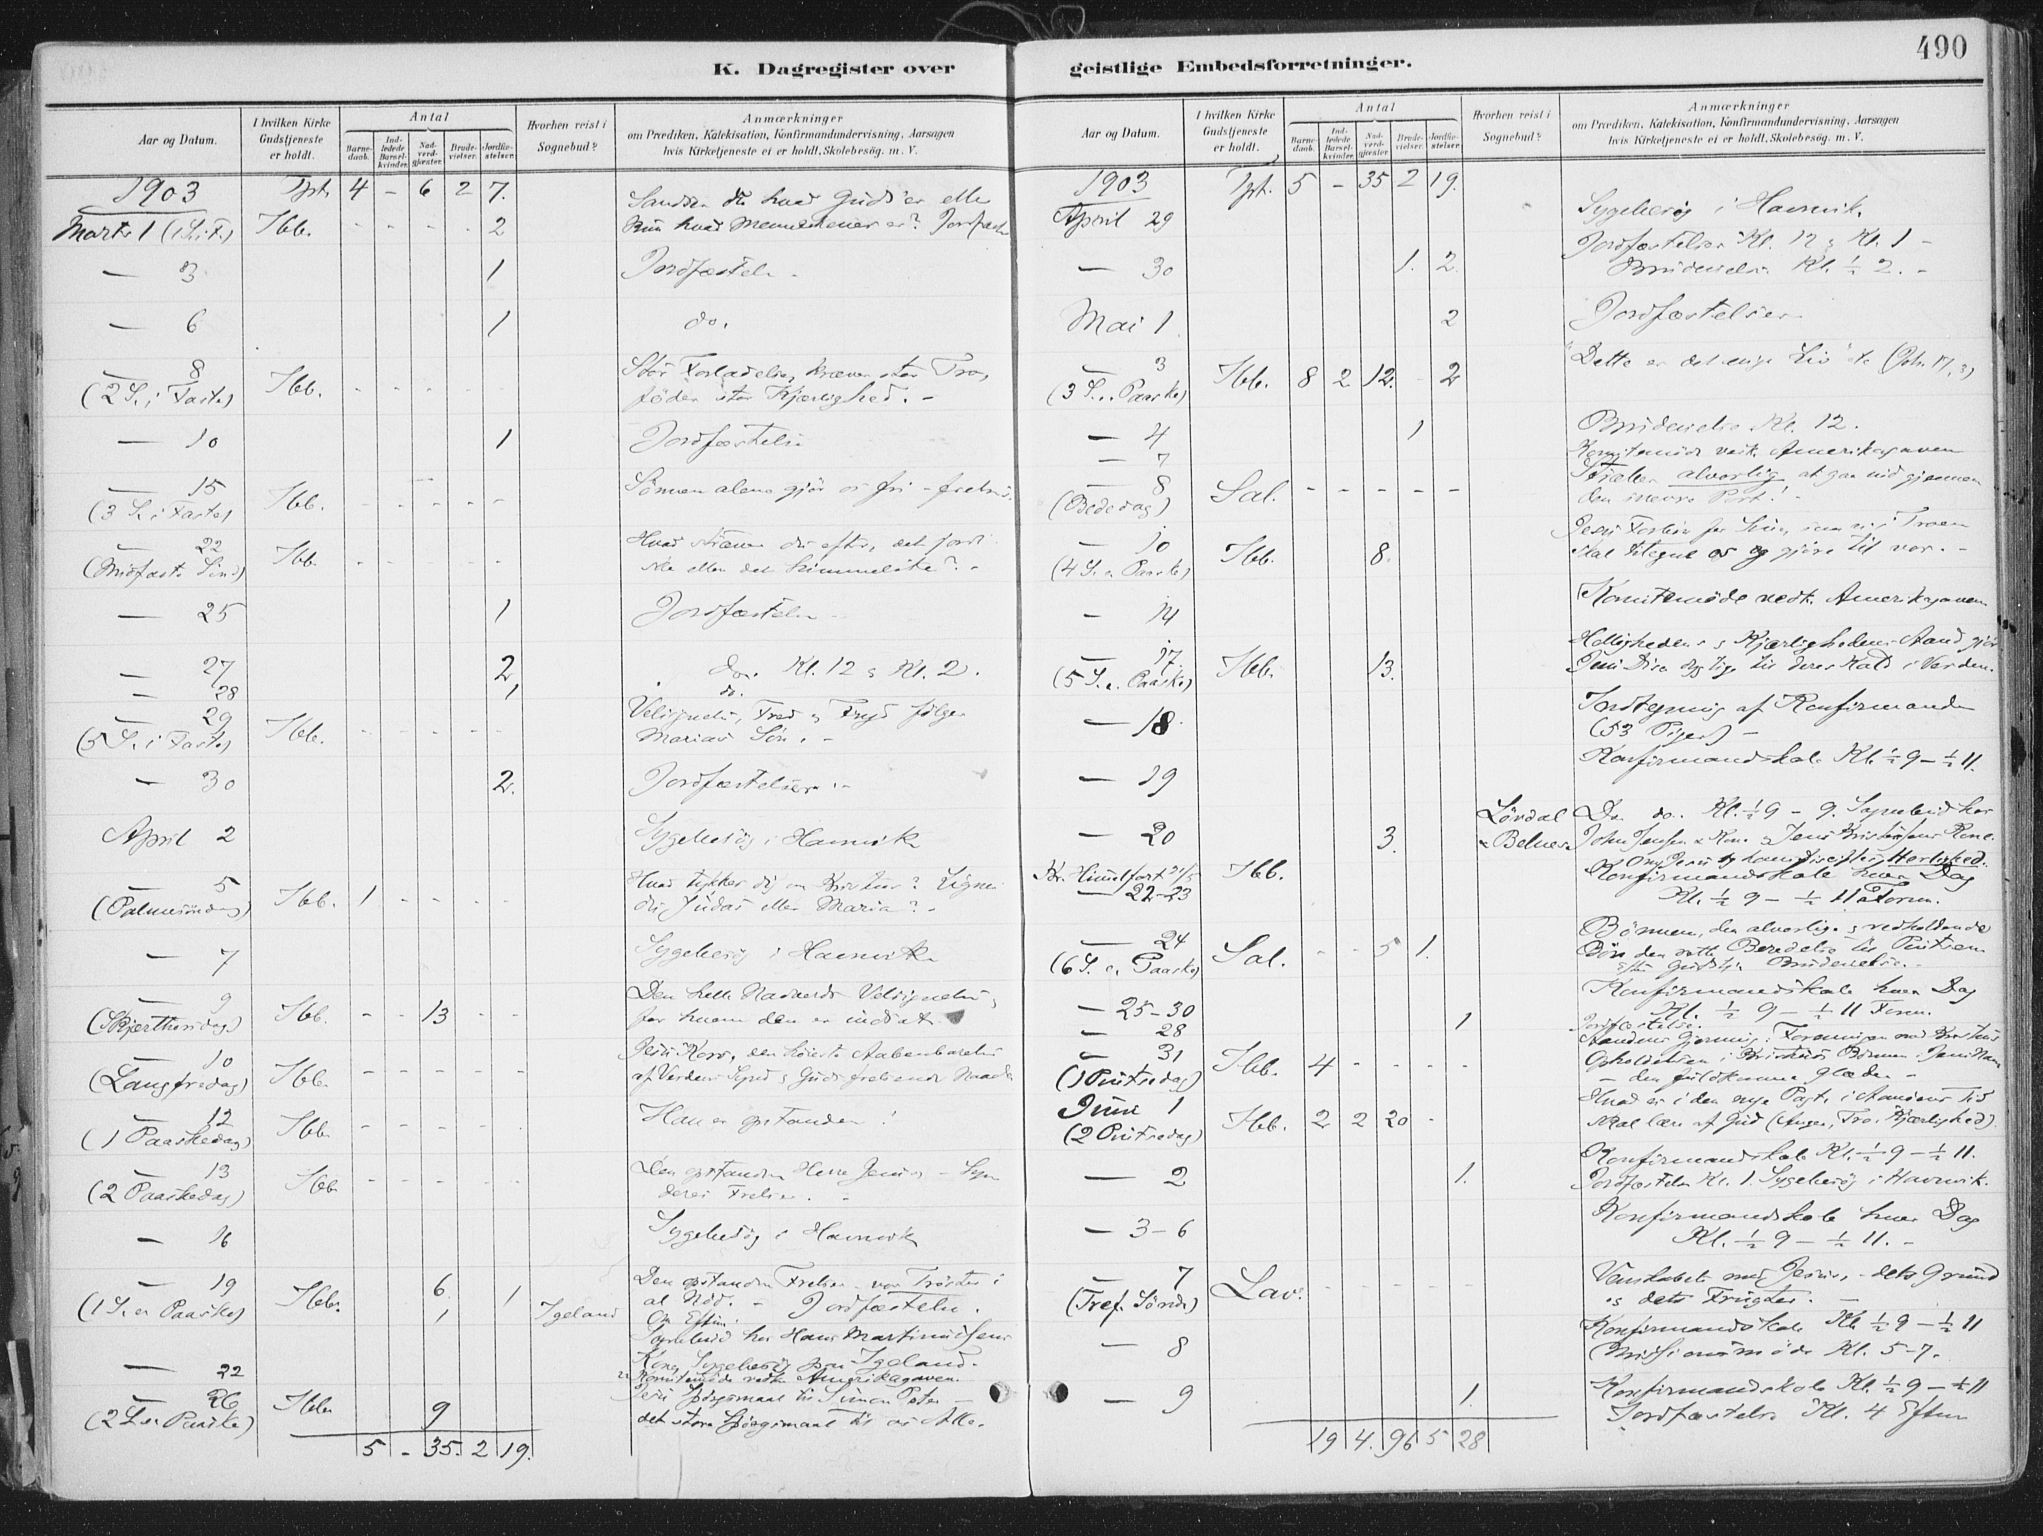 490
K. Dagregister over
geistlige Embedsforretninger.
Aar og Datum.
I hvilken Kirke Gudstjeneste er holdt.
Antal
Barnedaab.
Indledede Barselkvinder.
Nadverdgjester.
Brudevielser.
Jordfæstelser.
Hvorhen reist i Sognebud?
Anmærkninger
om Prædiken, Katekisation, Konfirmandundervisning, Aarsagen
hvis Kirketjeneste ei er holdt, Skolebesøg. m. V.
1903 Tpt. 4 - 6 2 7.
Marts 1 Hbb. - - - - 2 hvad Menneskener er?
— 3 1 Jordfæstelse
— 6 1 do.
— 8
(2 S. i Faste) Hbb. - - - - - Stor Forladelse kræver stor Tro,
føder stor Kjærlighed. -
— 10 1 Jordfæstelse
— 15
(3 S. i Faste) Hbb. - - - - - Sønnen alene gjør os fri
— 22
(Midfaste Sønd) Hbb. - - - - - Hvad du efter, det jordi
ske eller det himmelske? -
— 25 1 Jordfæstelse
— 27 2 do. Kl. 12 & Kl. 2.
— 28 1 do.
— 29
(5 S. i Faste) Hbb. - - - - - Velsignelse, Fred og Fryd følger
Marias Søn. -
— 30 2. Jordfæstelser. -
April 2 Sygebesøg i Havnvik
— 5
(Palmesøndag) Hbb. 1 - - - - Hvad tykker dig om Kristus? Ligner
du Judas eller Maria? -
— 7 Sygebesøg i Havnvik
— 9
(Skjærthorsdag) Hbb. - - 13 - - Den hell. Nadverds Velsignelse,
for hvem den er indsat.
— 10
(Langfredag) Hbb. - - - - - Jesu Kors, den høieste Aabenbarelse
af Verdens Synd & Guds frelsende Naade
— 12
(1 Paaskedag) Hbb. - - - - - Han er opstanden!
— 13
(2 Paaskedag) Hbb. - - - - - Den opstandne Herre Jesus - Syn
deres Frelser. -
— 16 Sygebesøg i Havnvik
— 19
(1 S. e. Paaske) Hbb. 6. 1 Den opstandne Frelser vor Trøster i
al Nød. - Jordfæstelse.
1 Igeland Sognebud hos Hans Martinusens
Kone, Sygebesøg paa Igeland.
— 22 Komitemøde vedk. Amerikagaven.
— 26
(2 S. e. Paaske) Hbb. 9 Jesu Spørgsmaal til Simon Peter -
det store Spørgsmaal til os Alle.
5 - 35. 2 19.
Aar og Datum.
I hvilken Kirke Gudstjeneste er holdt.
Antal
Barnedaab.
Indledede Barselkvinder.
Nadverdgjester.
Brudevielser.
Jordfæstelser.
Hvorhen reist i Sognebud?
Anmærkninger
om Prædiken, Katekisation, Konfirmandundervisning, Aarsagen
hvis Kirketjeneste ei er holdt, Skolebesøg. m. V.
1903 Tpt. 5 - 35 2 19.
April 29 Sygebesøg i Havnvik
— 30 1. 2. Jordfæstelser Kl. 12 & Kl. 1 -
Brudevielse Kl. ½ 2. -
Mai 1 2 Jordfæstelser
— 3
(3 S. e. Paaske) Hbb. 8 2 12. - 2 "Dette er det evige Liv" etc (Joh. 17,3)
— 4 1 Brudevielse Kl. 12.
— 7 Komitemøde vedk. Amerikagaven
— 8
(Bededag) Sal. - - - - - Stræber alvorlig at gaa ind gjennem
den snevre Port! -
— 10
(4 S. e. Paaske) Hbb. 8. Troen
skal tilegne os og gjøre til vor. -
— 14 Komitemøde vedk. Amerikagaven
— 17
(5 S. e. Paaske) Hbb. 13. Hellighedens & Kjærlighedens Aand gjør
Verden.
— 18 Indtegning af Konfirmander
(53 Piger) -
— 19 Konfirmandskole Kl. ½ 9 - ½ 11.
— 20 3. Lövdal
& Belnes Do. do. Kl. ½ 9 - 9. Sognebud hos
John Jensen & Kone & Jens Kristensens Kone.
Kr. Himmelfart 21/5 Hbb. Om Jesus og hans Disciples Herlighed.
— 22-23 Konfirmandskole hver Dag
Kl. ½ 9 - ½ 11 Form.
— 24
(6 S. e. Paaske) Sal. - - 5 1. Bønnen, den alvorlige & vedholdende
Bøn den rette Beredelse til Pintsen
efter Gudstj. Brudevielse. -
— 25-30 Konfirmandskole hver Dag
Kl. ½ 9 - ½ 11 Form.
— 28 1 Jordfæstelse.
— 31
(1 Pintsedag) Hbb. 4 - - - - Aandens Gjerning: Foreningen med Kristus
- den fuldkomne Glæde -
Juni 1
(2 Pintsedag) Hbb. 2 2 20 - Hvad er i den nye Pagt i Aandens Tid
skal lære af Gud (Anger, Tro, Kjærlighed)
— 2 1. Konfirmandskole Kl. ½ 9 - ½ 11.
Jordfæstelse Kl. 1. Sygebesøg i Havnvik.
— 3-6 Konfirmandskole hver Dag
Kl. ½ 9 - ½ 11. -
— 7
(Tref. Sønd.) Lav. - - - - - Venskabet med Jesus, - dets Grund
og dets Frugter. -
— 8 Konfirmandskole Kl. ½ 9 - ½ 11
Missionsmøde Kl. 5-7.
— 9 1. Konfirmandskole Kl. ½ 9 - ½ 11
Jordfæstelse Kl. 4 Efterm
19 4. 96 5 28